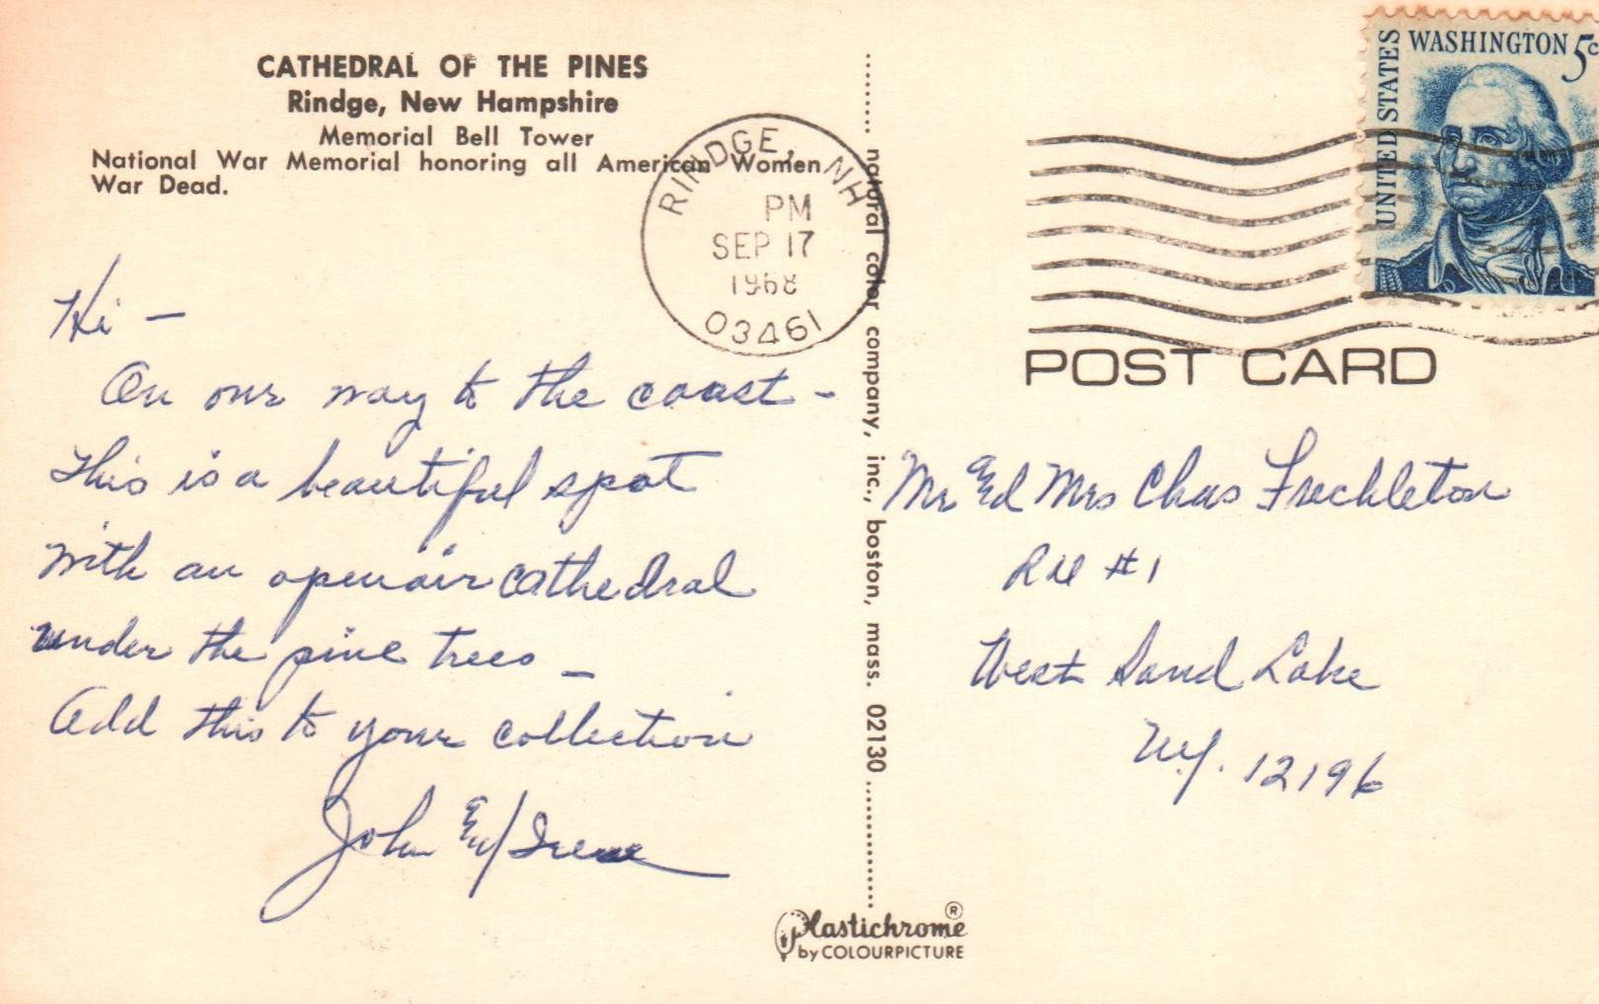 CATHEDRAL OF THE PINES
Rindge, New Hampshire
Memorial Bell Tower
National War Memorial honoring all American Women
War Dead.
Hi —
On our way to the coast -
This is a beautiful spot
with an openair cathedral
under the pine trees _
Add this to your collection
John & Irene
RINDGE, NH
PM
SEP 17
1968
03461
natural color company, inc., boston, mass. 02130
Plastichrome ®
by COLOURPICTURE
UNITED STATES
WASHINGTON 5c
POST CARD
Mr & Mrs Chas Freckleton
RD #1
West Sand Lake
N.Y. 12196